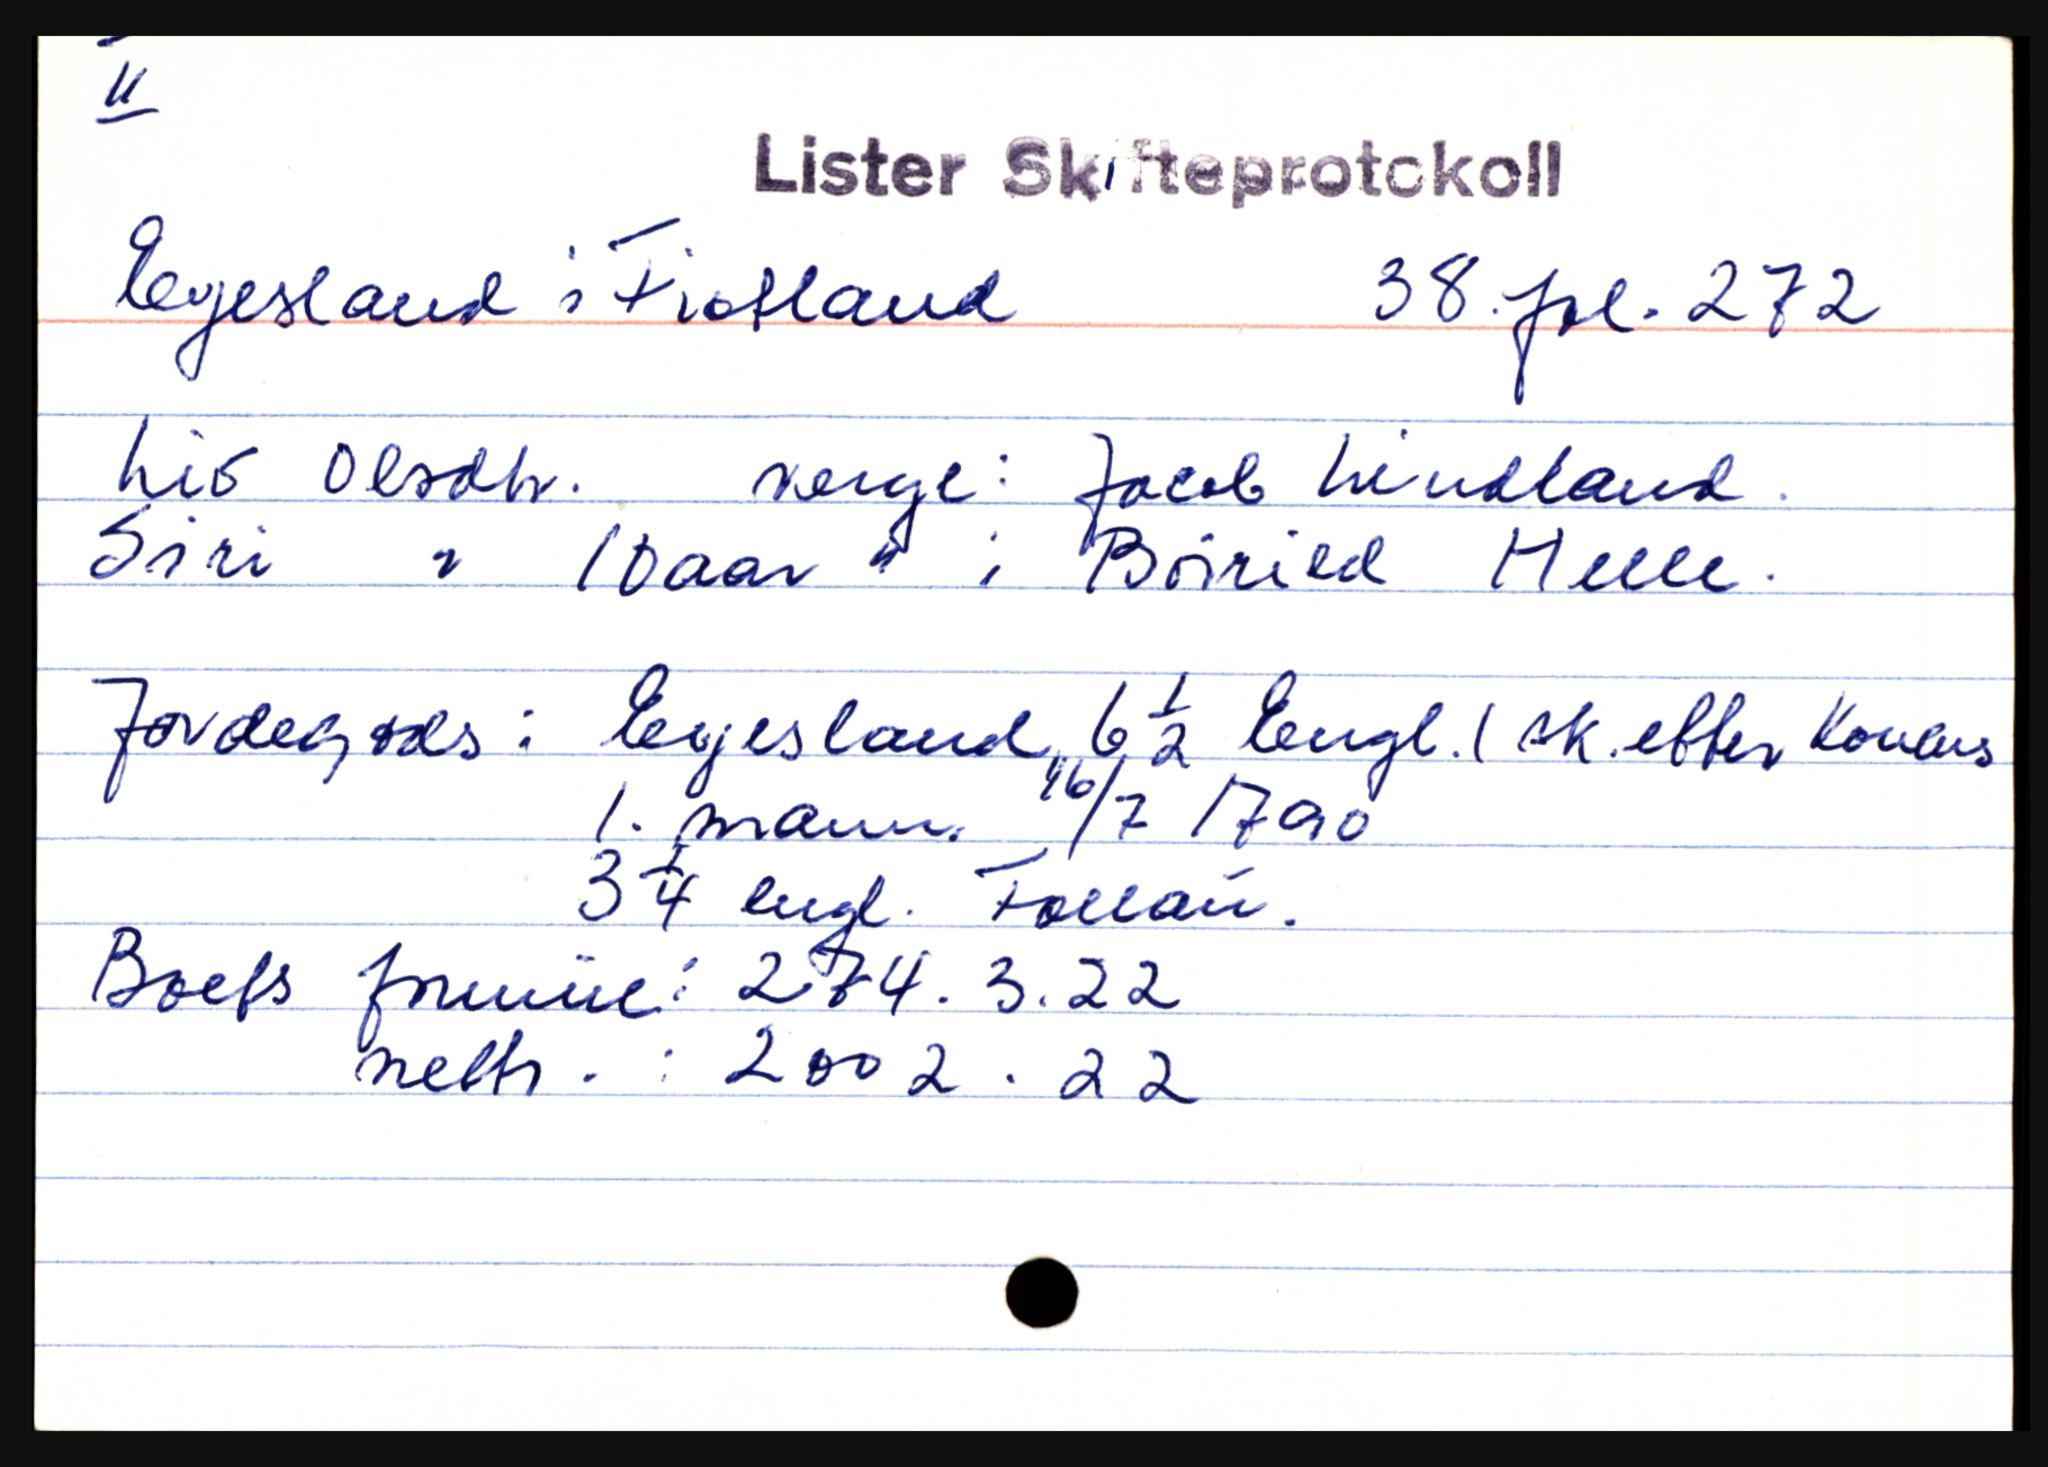 II
Lister Skifteprotokoll
Eyesland i Fiotland 38. fol. 272
Liv Olsdtr. verge: Jacob Lindland.
Siri " 10 aar " : Böirild Helle.
Jordegods: Eyesland, 6 1/2 Engl. 1 sk. efter Konens
1. mann. 16/7 1790
3 1/4 engl. Follaú.
Boets formúe: 2274. 3. 22
netto. : 2002 . 22